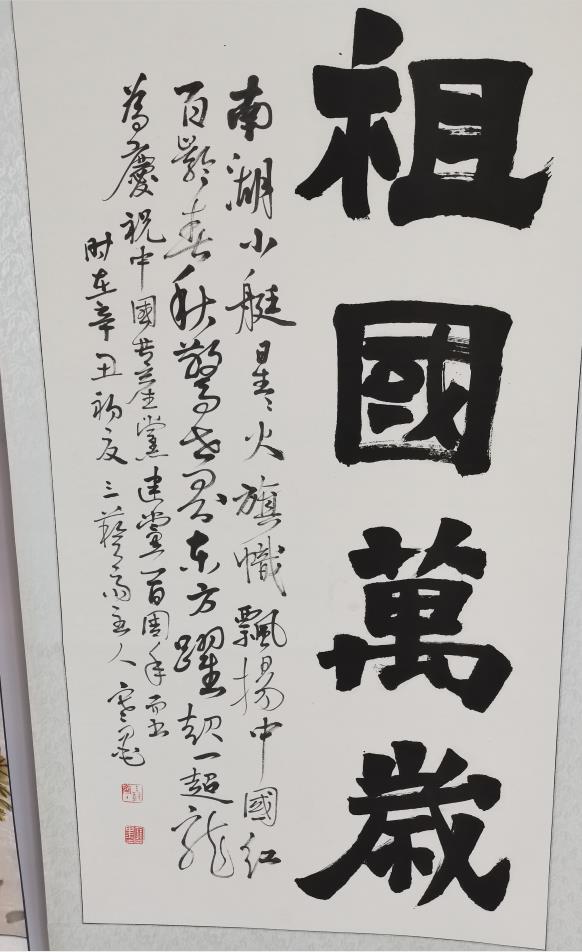 祖國萬歲
南湖小艇星火旗幟飄揚中國紅
百齡春秋驚世界東方躍起一超龍
為慶祝中國共產黨建黨一百周年而書
時在辛丑初夏三藝斋主人